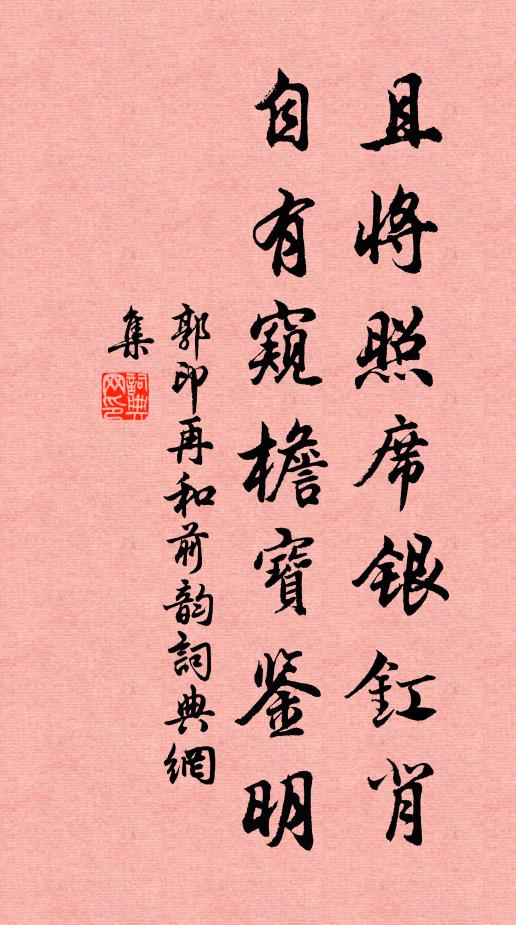 且将照席銀釭背
自有窺檐寶鉴明
郭印再和前韵詞典網
集
詞典网印